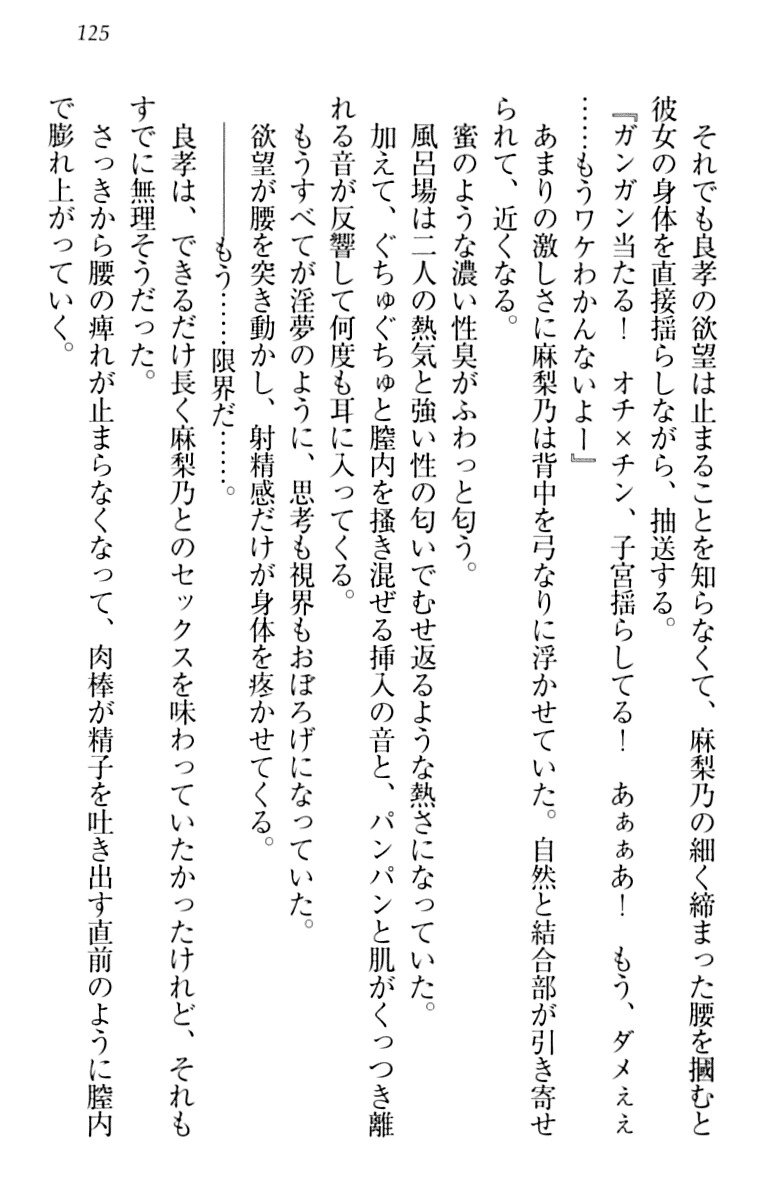 125
それでも良孝の欲望は止まることを知らなくて、麻梨乃の細く締まった腰を摑むと
彼女の身体を直接揺らしながら、抽送する。
『ガンガン当たる！　オチ×チン、子宮揺らしてる！　あぁぁあ！　もう、ダメぇぇ
……もうワケわかんないよー』
あまりの激しさに麻梨乃は背中を弓なりに浮かせていた。自然と結合部が引き寄せ
られて、近くなる。
蜜のような濃い性臭がふわっと匂う。
風呂場は二人の熱気と強い性の匂いでむせ返るような熱さになっていた。
加えて、ぐちゅぐちゅと膣内を掻き混ぜる挿入の音と、パンパンと肌がくっつき離
れる音が反響して何度も耳に入ってくる。
もうすべてが淫夢のように、思考も視界もおぼろげになっていた。
欲望が腰を突き動かし、射精感だけが身体を疼かせてくる。
――――もう……限界だ……。
良孝は、できるだけ長く麻梨乃とのセックスを味わっていたかったけれど、それも
すでに無理そうだった。
さっきから腰の痺れが止まらなくなって、肉棒が精子を吐き出す直前のように膣内
で膨れ上がっていく。